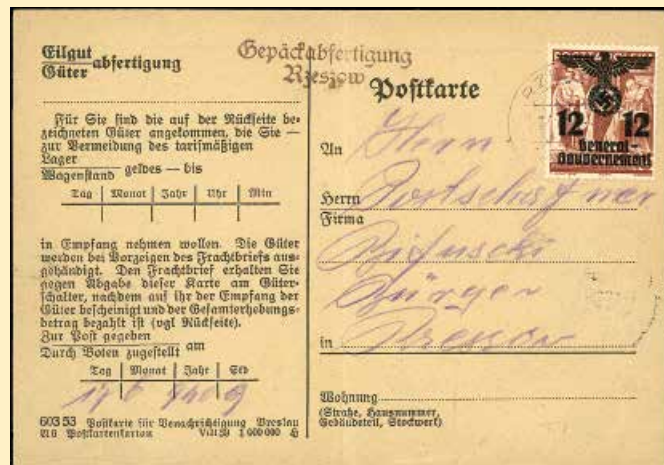 Eilgut
Güter abfertigung
Gepäckabfertigung
Rzeszow
Postkarte
12 12
General-
Gouvernement
Für Sie sind die auf der Rückseite be-
zeichneten Güter angekommen, die Sie —
zur Vermeidung des tarifmäßigen
Lager
Wagenstand geldes — bis
Tag Monat Jahr Uhr Min
in Empfang nehmen wollen. Die Güter
werden bei Vorzeigen des Frachtbriefs aus-
gehändigt. Den Frachtbrief erhalten Sie
gegen Abgabe dieser Karte am Güter-
schalter, nachdem auf ihr der Empfang der
Güter bescheinigt und der Gesamterhebungs-
betrag bezahlt ist (vgl Rückseite).
Zur Post gegeben
Durch Boten zugestellt am
Tag Monat Jahr Std
603 53 Postkarte für Benachrichtigung Breslau
A6 Postkartenkarton 1 000 000
An Herrn
Herrn
Firma
in
Wohnung
(Straße, Hausnummer,
Gebäudeteil, Stockwerk)